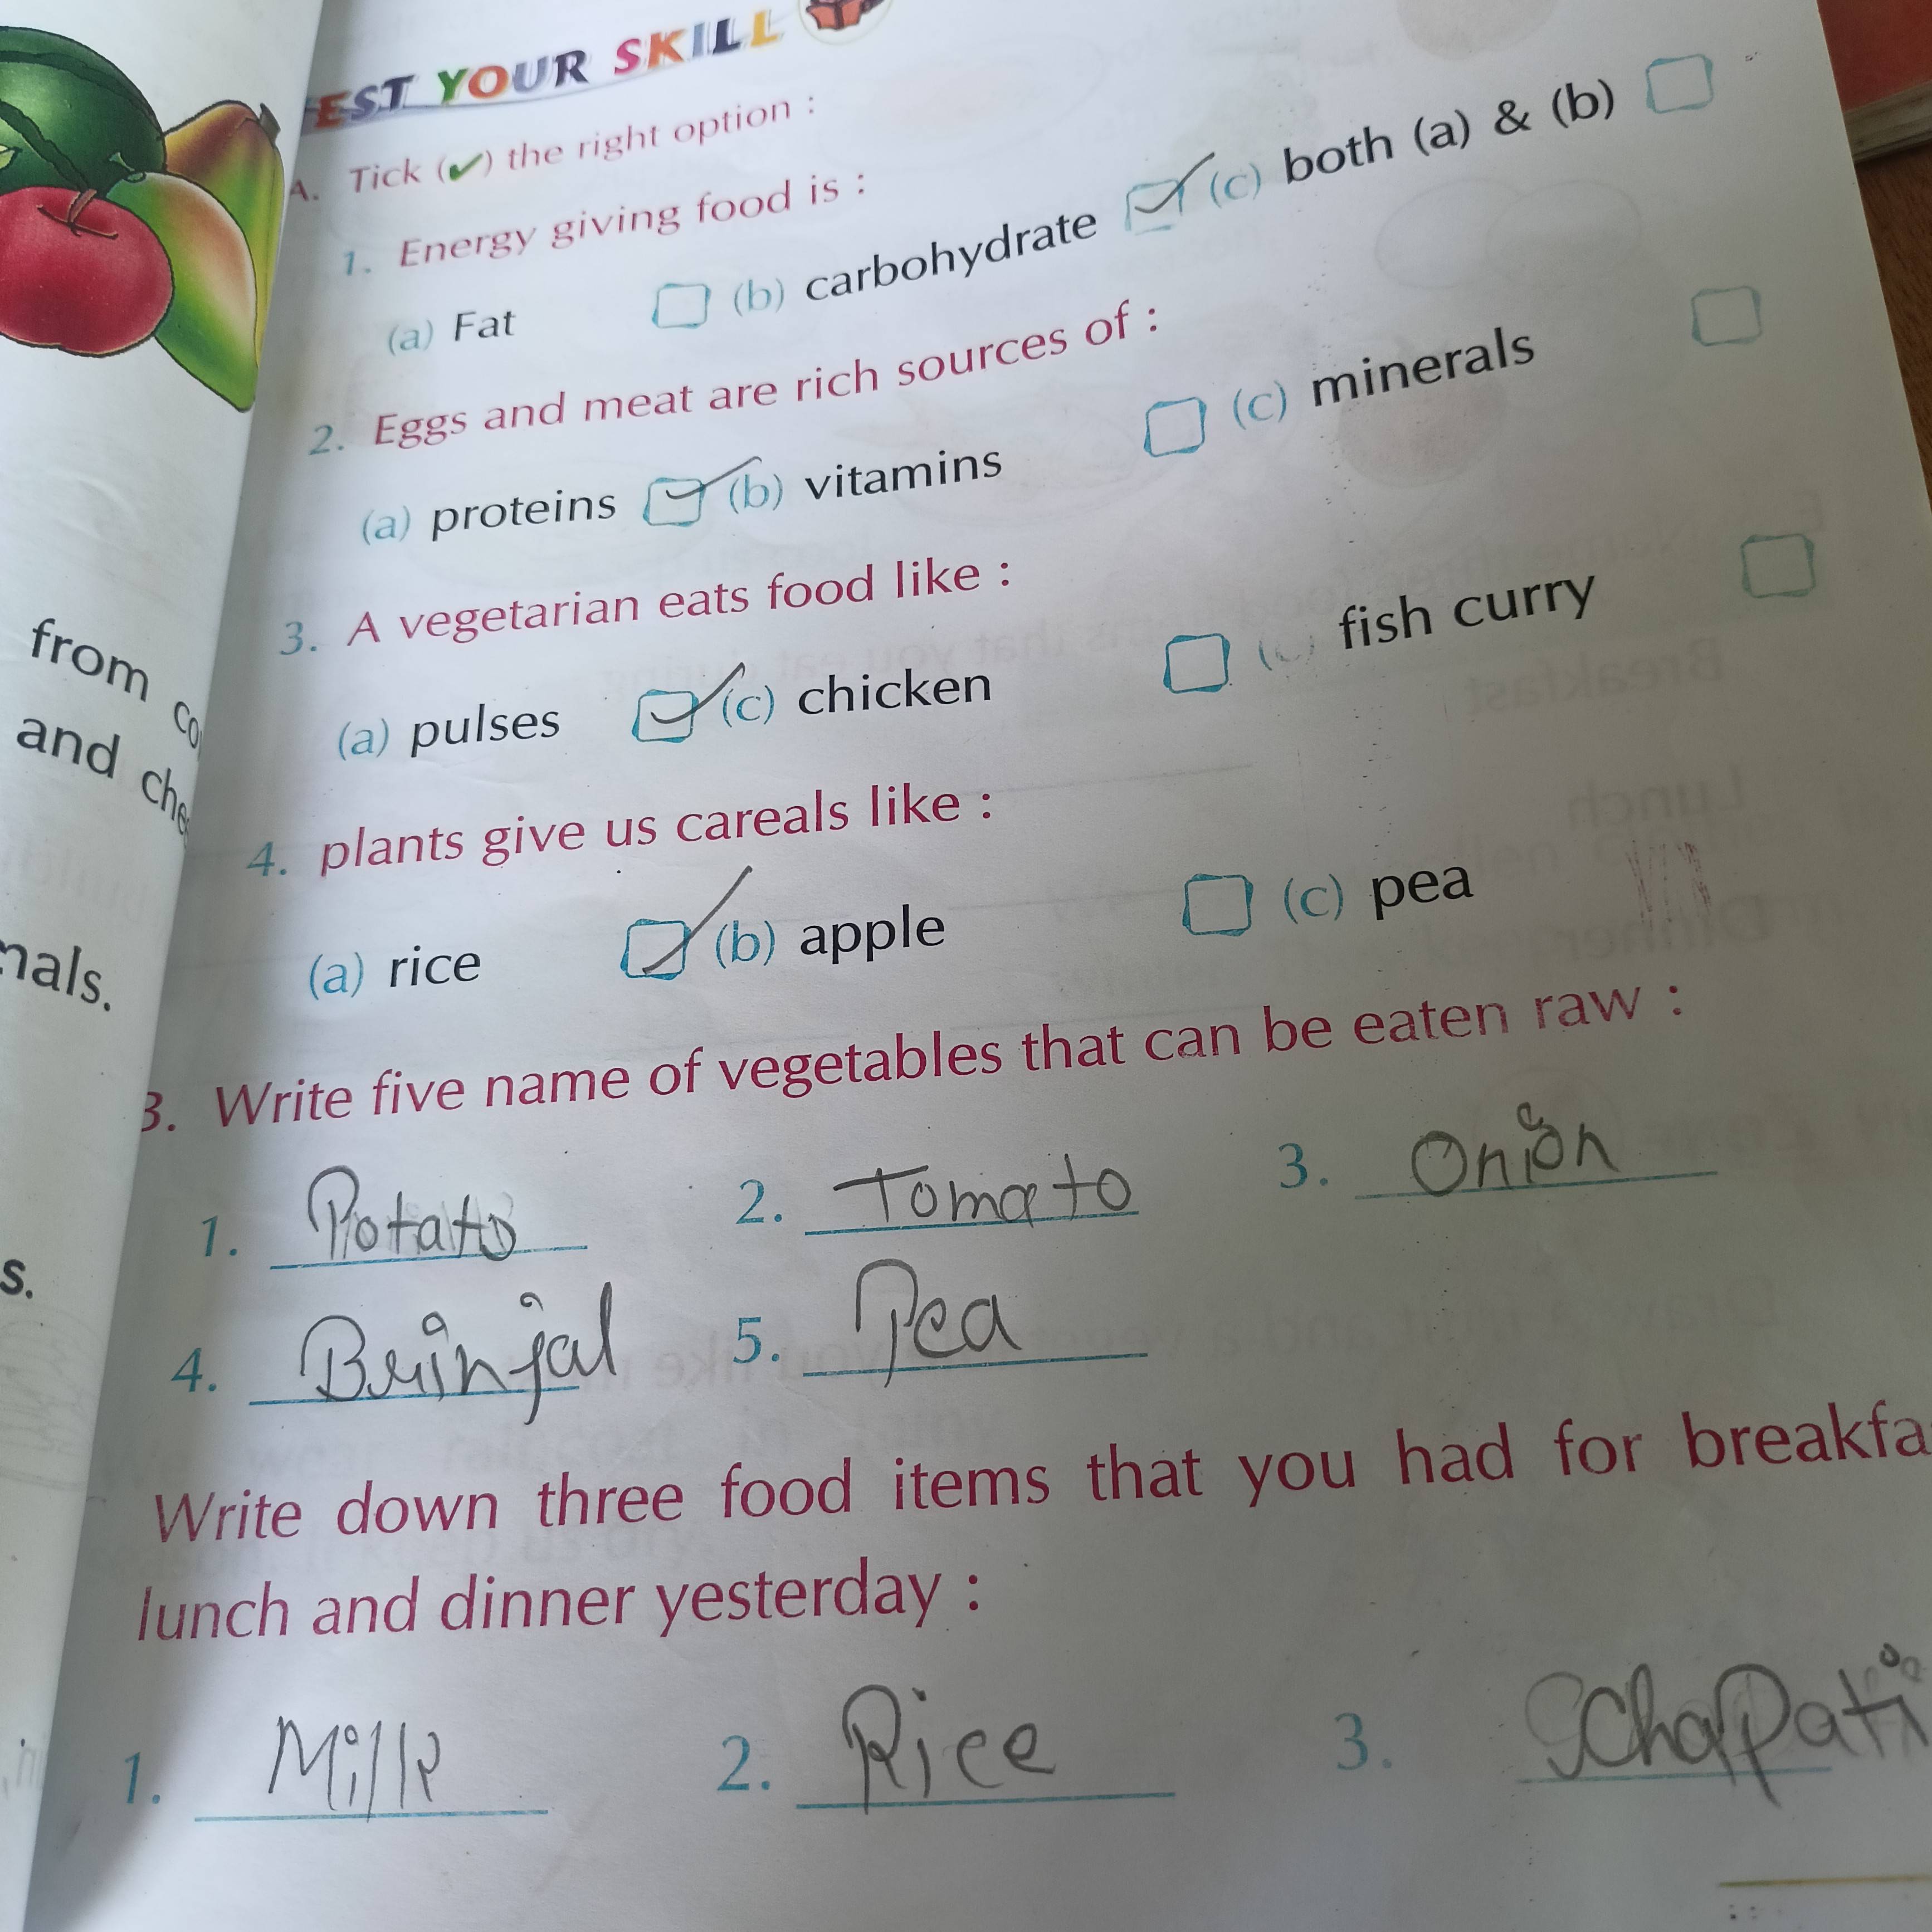 EST YOUR SKILL
A. Tick (✔) the right option :
1. Energy giving food is :
(a) Fat (b) carbohydrate (c) both (a) & (b)
2. Eggs and meat are rich sources of :
(a) proteins (b) vitamins (c) minerals
3. A vegetarian eats food like :
(a) pulses (c) chicken fish curry
4. plants give us careals like :
(a) rice (b) apple (c) pea
3. Write five name of vegetables that can be eaten raw :
1. Potato 2. Tomato 3. Onion
4. Brinjal 5. Pea
Write down three food items that you had for breakfa
lunch and dinner yesterday :
1. Milk 2. Rice 3. Chapati
from co
and che
nals.
s.